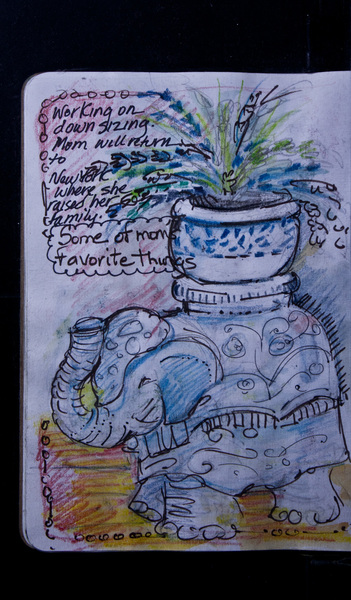 Working on
downsizing.
Mom will return
to
New York
where she
raised her
family.
Some of mom
favorite things